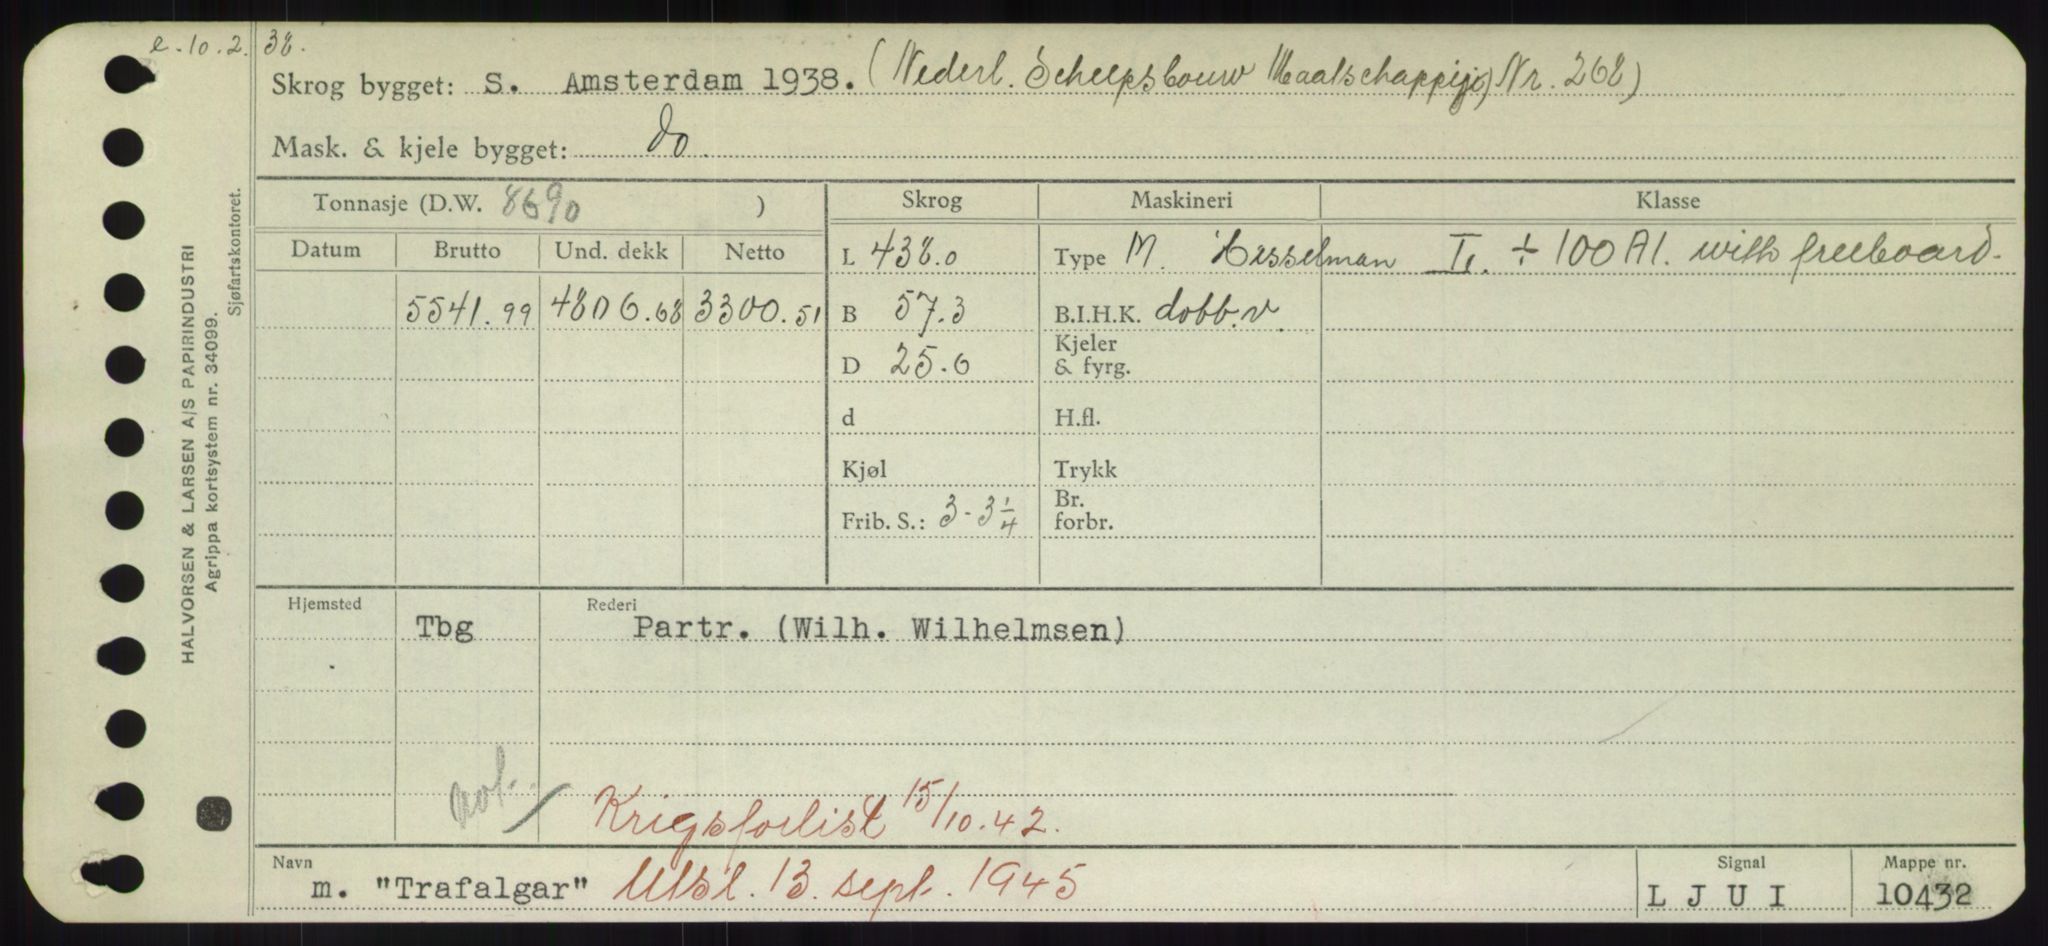 e. 10. 2. 38.
Skrog bygget: S. Amsterdam 1938. (Nederl. Scheepsbouw Maatschappij) Nr. 268)
Mask. & kjele bygget: do.
HALVORSEN & LARSEN A/S PAPIRINDUSTRI
Agrippa kortsystem nr. 34099.
Sjøfartskontoret.
Tonnasje (D.W. 8690 ) Skrog Maskineri Klasse
Datum Brutto Und. dekk Netto L 438.0 Type M. Hesselman I. ÷ 100 A1. with freeboard.
5541.99 4806.68 3300.51 B 57.3 B.I.H.K. dobb.v.
D 25.6 Kjeler & fyrg.
d H.fl.
Kjøl Trykk
Frib. S.: 3-3 1/4 Br. forbr.
Hjemsted Rederi
Tbg Partr. (Wilh. Wilhelmsen)
not.
Krigsforlist 15/10.42.
Navn Signal Mappe nr.
m. "Trafalgar" Utsl. 13. sept. 1945 L J U I 10432